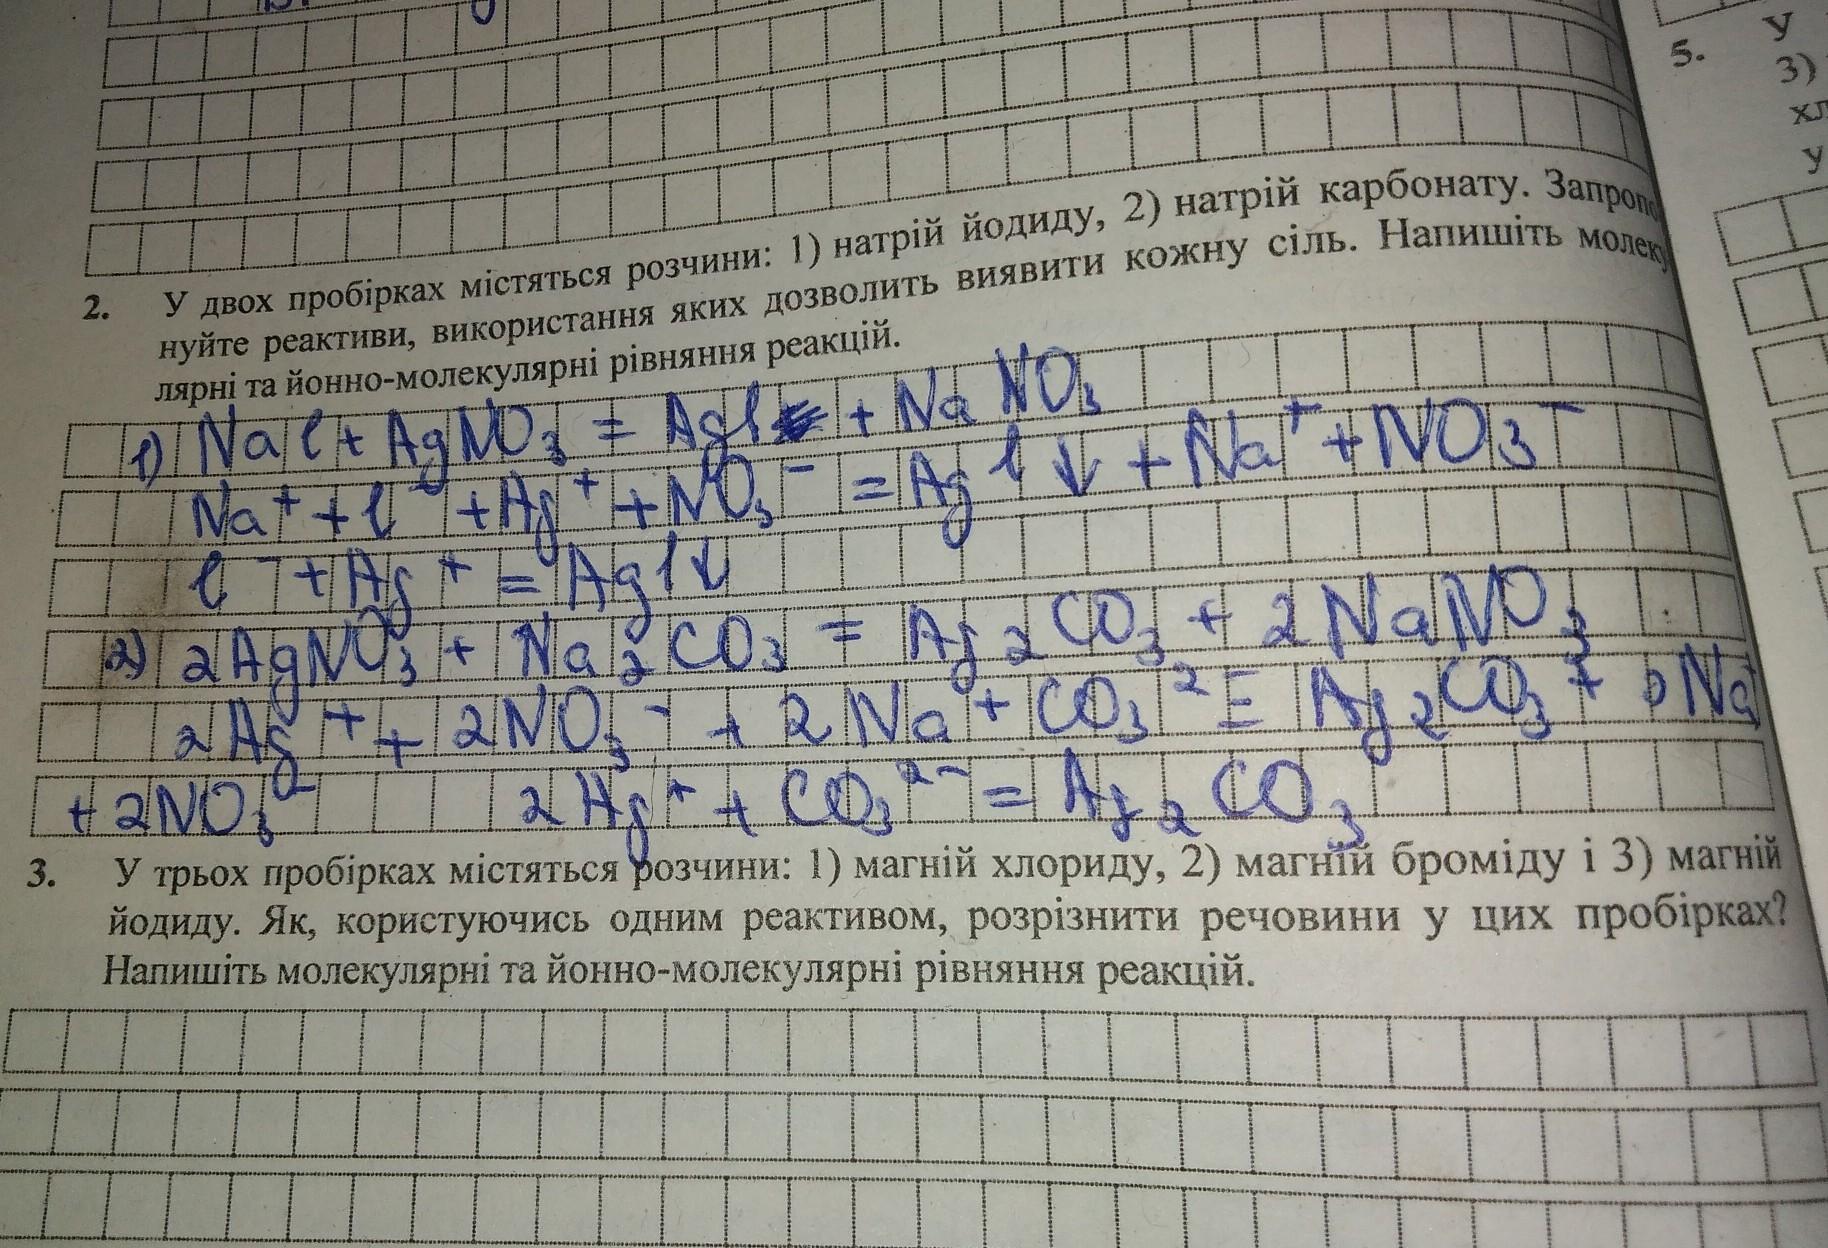 5.
У
3)
хл
у
2. У двох пробірках містяться розчини: 1) натрій йодиду, 2) натрій карбонату. Запропо
нуйте реактиви, використання яких дозволить виявити кожну сіль. Напишіть молеку
лярні та йонно-молекулярні рівняння реакцій.
1) NaI + AgNO3 = AgI + NaNO3
Na+ + I- + Ag+ + NO3- = AgI↓ + Na+ + NO3-
I- + Ag+ = AgI↓
2) 2AgNO3 + Na2CO3 = Ag2CO3 + 2NaNO3
2Ag+ + 2NO3- + 2Na+ CO3 2= Ag2CO3 + 2Na
+ 2NO3- 2Ag+ + CO3 2- = Ag2CO3
3. У трьох пробірках містяться розчини: 1) магній хлориду, 2) магній броміду і 3) магній
йодиду. Як, користуючись одним реактивом, розрізнити речовини у цих пробірках?
Напишіть молекулярні та йонно-молекулярні рівняння реакцій.